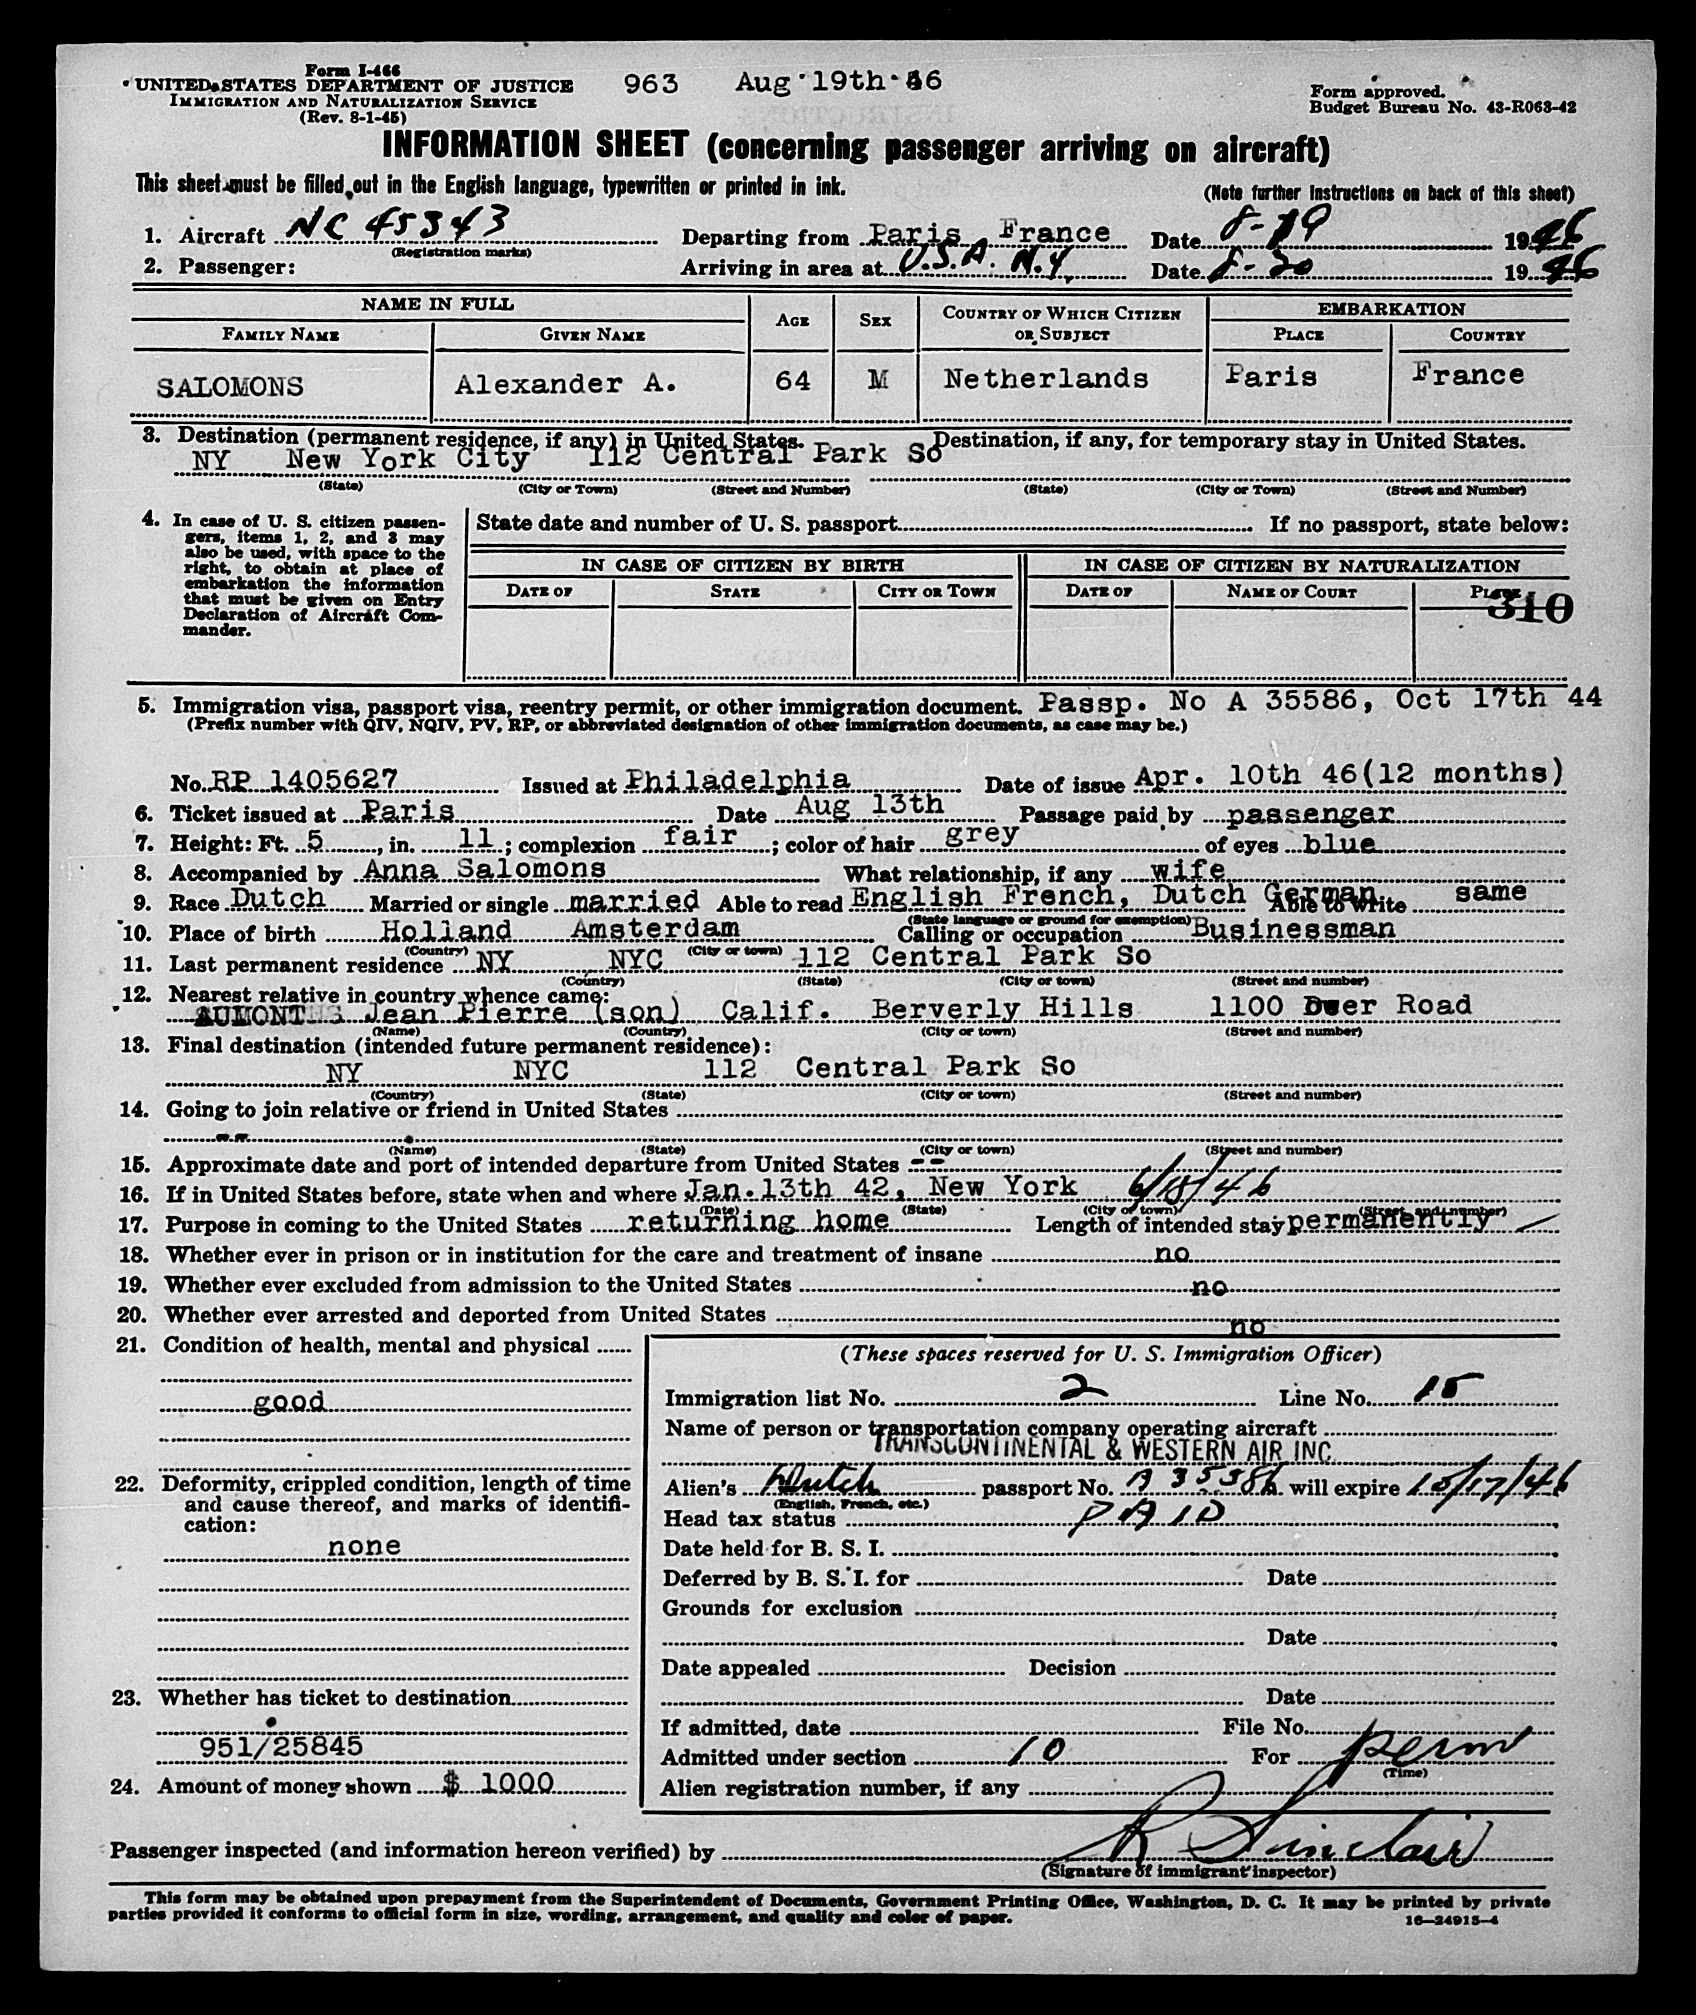 Form I-466
UNITED STATES DEPARTMENT OF JUSTICE 963 Aug 19th 46
IMMIGRATION AND NATURALIZATION SERVICE
(Rev. 8-1-45)
Form approved.
Budget Bureau No. 43-R063-42
INFORMATION SHEET (concerning passenger arriving on aircraft)
This sheet must be filled out in the English language, typewritten or printed in ink. (Note further instructions on back of this sheet)
1. Aircraft NC 45343 Departing from Paris France Date 8-19 1946
(Registration marks)
2. Passenger: Arriving in area at U.S.A. N.Y. Date 8-20 1946
NAME IN FULL AGE SEX COUNTRY OF WHICH CITIZEN OR SUBJECT EMBARKATION
FAMILY NAME GIVEN NAME PLACE COUNTRY
SALOMONS Alexander A. 64 M Netherlands Paris France
3. Destination (permanent residence, if any) in United States. Destination, if any, for temporary stay in United States.
NY New York City 112 Central Park So
(State) (City or Town) (Street and Number) (State) (City or Town) (Street and Number)
4. In case of U. S. citizen passen-
gers, items 1, 2, and 3 may
also be used, with space to the
right, to obtain at place of
embarkation the information
that must be given on Entry
Declaration of Aircraft Com-
mander.
State date and number of U. S. passport If no passport, state below:
IN CASE OF CITIZEN BY BIRTH IN CASE OF CITIZEN BY NATURALIZATION
DATE OF STATE CITY OR TOWN DATE OF NAME OF COURT PLACE
310
5. Immigration visa, passport visa, reentry permit, or other immigration document. Passp. No A 35586, Oct 17th 44
(Prefix number with QIV, NQIV, PV, RP, or abbreviated designation of other immigration documents, as case may be.)
No. RP 1405627 Issued at Philadelphia Date of issue Apr. 10th 46(12 months)
6. Ticket issued at Paris Date Aug 13th Passage paid by passenger
7. Height: Ft. 5, in. 11; complexion fair; color of hair grey of eyes blue
8. Accompanied by Anna Salomons What relationship, if any wife
9. Race Dutch Married or single married Able to read English French, Dutch German Able to write same
(State language or ground for exemption)
10. Place of birth Holland Amsterdam Calling or occupation Businessman
(Country) (City or town)
11. Last permanent residence NY NYC 112 Central Park So
(Country) (State) (City or town) (Street and number)
12. Nearest relative in country whence came:
AUMONT Jean Pierre (son) Calif. Berverly Hills 1100 Road
(Name) (Country) (City or town) (Street and number)
13. Final destination (intended future permanent residence):
NY NYC 112 Central Park So
(Country) (State) (City or town) (Street and number)
14. Going to join relative or friend in United States
--
(Name) (State) (City or town) (Street and number)
15. Approximate date and port of intended departure from United States --
16. If in United States before, state when and where Jan. 13th 42, New York 6/18/46
(Date) (State) (City or town) (Street and number)
17. Purpose in coming to the United States returning home Length of intended stay permanently
18. Whether ever in prison or in institution for the care and treatment of insane no
19. Whether ever excluded from admission to the United States no
20. Whether ever arrested and deported from United States no
21. Condition of health, mental and physical
good
22. Deformity, crippled condition, length of time
and cause thereof, and marks of identifi-
cation:
none
23. Whether has ticket to destination
951/25845
24. Amount of money shown $ 1000
(These spaces reserved for U. S. Immigration Officer)
Immigration list No. 2 Line No. 15
Name of person or transportation company operating aircraft
TRANSCONTINENTAL & WESTERN AIR INC.
Alien's Dutch passport No. A 35586 will expire 10/17/46
(English, French, etc.)
Head tax status PAID
Date held for B. S. I.
Deferred by B. S. I. for Date
Grounds for exclusion
Date
Date appealed Decision
Date
If admitted, date File No.
Admitted under section 10 For perm
(Time)
Alien registration number, if any
Passenger inspected (and information hereon verified) by R Sinclair
(Signature of immigrant inspector)
This form may be obtained upon prepayment from the Superintendent of Documents, Government Printing Office, Washington, D. C. It may be printed by private
parties provided it conforms to official form in size, wording, arrangement, and quality and color of paper.
16—24915-4